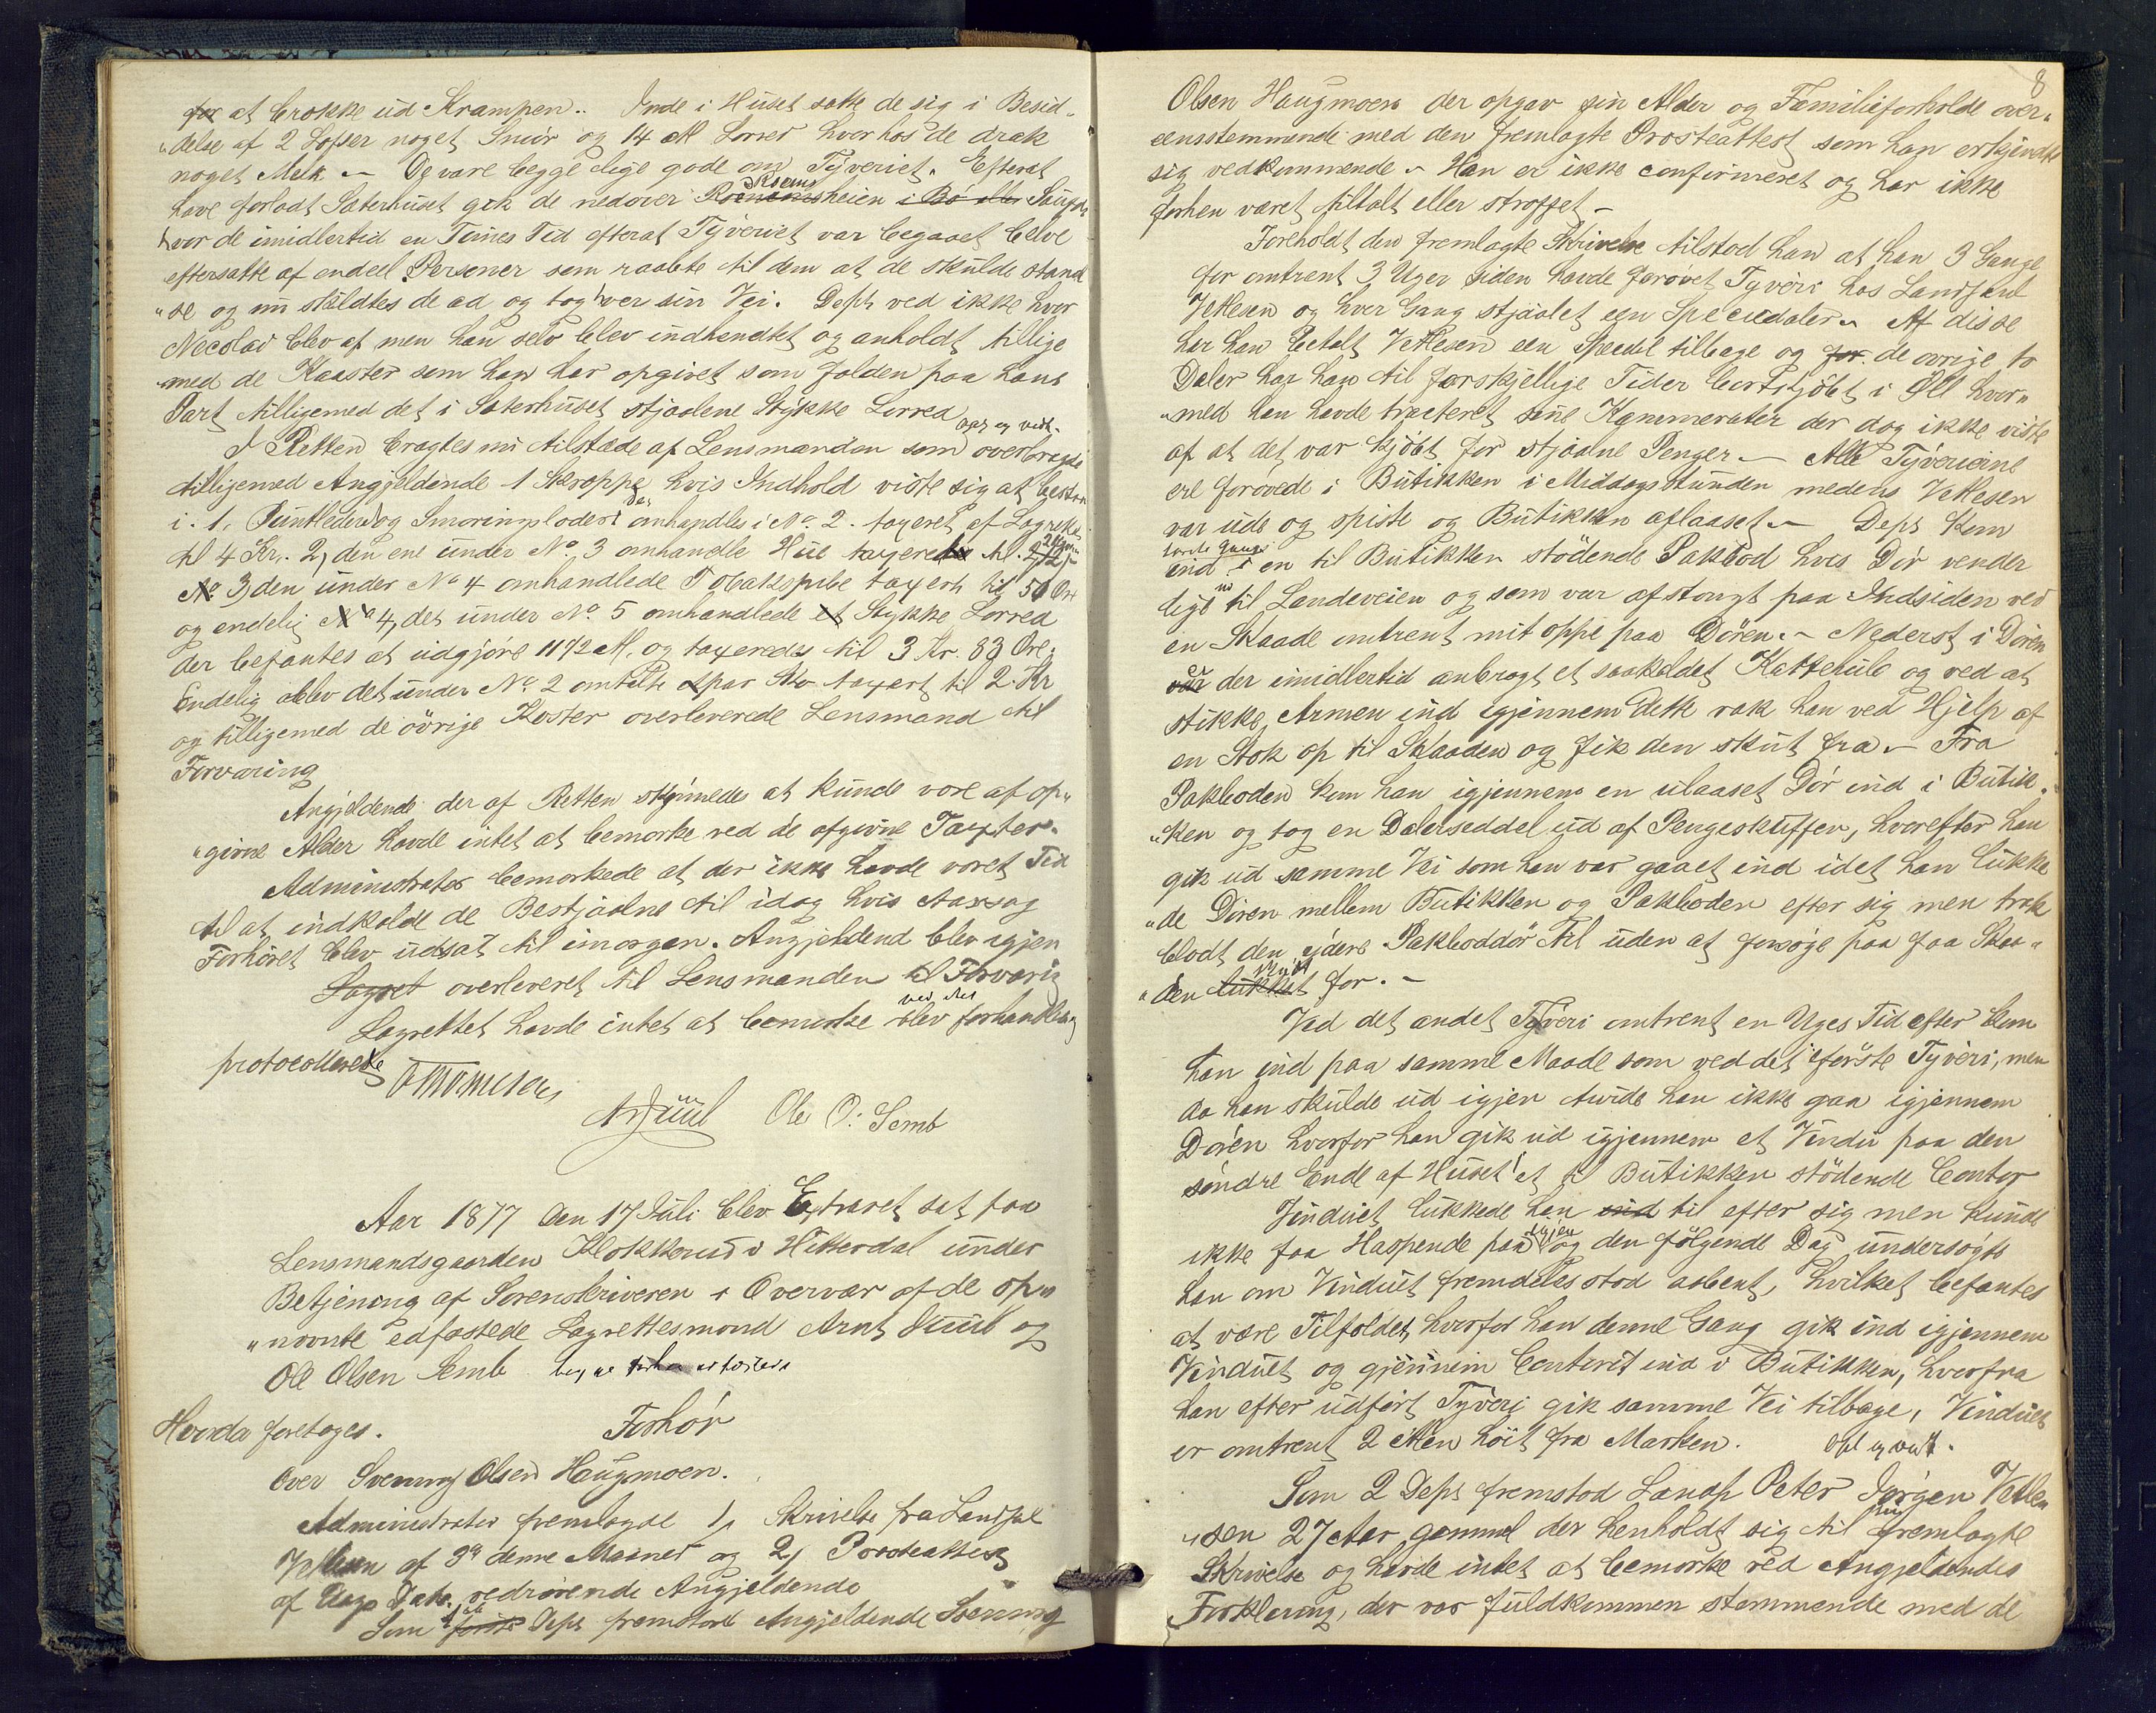 for at brække ud Krampen.. Inde i Huset satte de sig i Besid„
„delse af 2 Lefser noget Smør og 14 Al Lerred hvorhos de drak
noget Melk. – De vare begge lige gode om Tyveriet. Efterat
have forladt Sæterhuset gik de nedover Roemsheien i Bø eller Saugd„
hvor de imidlertid en Times Tid efterat Tyveriet var begaaet bleve
eftersatte af endeel Personer som raabte til dem at de skulde stand
„se og nu skildtes de ad og tog hver sin Vei. Deps ved ikke hvor
Necolai blev af men han selv blev indhendtet og anholdt tillige
med de Kaaster som han har opgivet som falden paa hans
Part tilligemed det i Sæterhuset stjaalene Stykke Lerred opl og vedt.
I Retten bragtes nu tilstæde af Lensmanden som overbragte
tilligemed Angjeldende 1 Skreppe hvis Indhold viste sig at bestaa
i. 1, Puntlæderet og Smøringslæder der omhandles i No. 2. taxeret af Lagrettet
til 4 Kr. 2, den ene under No. 3 omhandle Hue taxeret til
No 3, den under No 4 omhandlede Tobakspibe taxert til 50 Øre
og endelig No 4, det under No. 5 omhandlede et Stykke Lerred
der befantes at udgjøre 11 1/2 Al. og taxeredes til 3 Kr. 83 Øre.
Endelig blev det under No. 2 omtalte et par Sko taxert til 2. Kr
og tilligemed de øvrige Koster overleverede Lensmand til
Forvaring
Angjeldende der af Retten skjønnedes at kunde være af op„
„givne Alder havde intet at bemærke ved de afgivne Taxter.
Administrator bemærkede at der ikke havde været Tid
til at indkalde de Bestjaalne til idag hvis Aarsag
Forhøret blev udsat til imorgen. Angjeldend blev igjen
Lagret overleveret til Lensmanden til Forvaring
Lagrettet havde intet at bemærke ved det blev forhandling
protocollerede
Thomesen
A Juul Ole O. Semb
Aar 1877 den 17 Juli blev Extraret sat paa
Lensmandsgaarden Klokkerud i Hitterdal under
Betjening af Sorenskriveren i Overvær af de op„
„nævnte edfæstede Lagrettesmænd Arnt Juul og
Ole Olsen Semb
Hvorda foretoges.
Forhør
over Svenung Olsen Haugmoen.
Administrator fremlagde 1, Skrivelse fra Landhl
Vetlesen af 9de denne Maaned og 2, Præsteattest
af Dags Dato vedrørende Angjeldende
Som 1ste første Deps fremstod Angjeldende Svenung
8
Olsen Haugmoen der opgav sin Alder og Familieforholde over„
eensstemmende med den fremlagte Præsteattest som han erkjendte
sig vedkommende. – Han er ikke confirmeret og har ikke
forhen været tiltalt eller straffet –
Foreholdt den fremlagte Skrivelse tilstod han at han 3 Gange
for omtrent 3 Uger siden havde forøvet Tyveri hos Landhl
Vetlesen og hver Gang stjaalet een Speciedaler. – Af disse
har han betalt Vetlesen een Specidl tilbage og for de øvrige to
Daler har han til forskjellige Tider bortkjøbt i Øll hvor„
„med han havde tracteret sine Kammerater der dog ikke viste
af at det var kjøbt for stjaalne Penger. – Alle Tyverierne
ere forøvede i Butikken i Middagsstunden medens Vetlesen
var ude og spiste og Butikken aflaaset. – Deps kom
første Gang
ind i en til Butikken stødende Pakbod hvis Dør vender
lige ud til Landeveien og som var afstængt paa Indsiden ved
en Skaade omtrent mit oppe paa Døren. – Nederst i Døren
er
var der imidlertid anbragt et saakaldet Kattehule og ved at
stikke Armen ind igjennem dette rak han ved Hjelp af
en Stok op til Skaaden og fik den skut fra. – Fra
Pakboden kom han igjennem en ulaaset Dør ind i Butik„
„ken og tog en Dalerseddel ud af Pengeskuffen, hvorefter han
gik ud samme Vei som han var gaaet ind idet han lukke
„de Døren mellem Butikken og Pakboden efter sig men trak
blodt den ydere Pakboddør til uden at forsøge paa faa Skaa„
„den lukket skutt for. –
Ved det andet Tyveri omtrent en Uges Tid efter kom
han ind paa samme Maade som ved det første Tyveri, men
da han skulde ud igjen turde han ikke gaa igjennem
Døren hvorfor han gik ud igjennem et Vindu paa den
søndre Ende af Huset i et til Butikken stødende Contor
Vinduet lukkede han ind til efter sig men kunde
ikke faa Haspende paa igjen og den følgende Dag undersøgte
han om Vinduet fremdeles stod aabent, hvilket befantes
at være Tilfældet, hvorfor han denne Gang gik ind igjennem
Vinduet og gjennem Contoret ind i Butikken, hvorfra
han efter udført Tyveri gik samme Vei tilbage, Vinduet
er omtrent 2 Alen høit fra Marken. Opl og vedt.
Som 2 Deps fremstod Landh Peter Jørgen Vetle„
„sen 27 Aar gammel der henholdt sig til sin fremlagte
Skrivelse og havde intet at bemærke ved Angjeldendes
Forklaring, der var fuldkommen stemmende med de